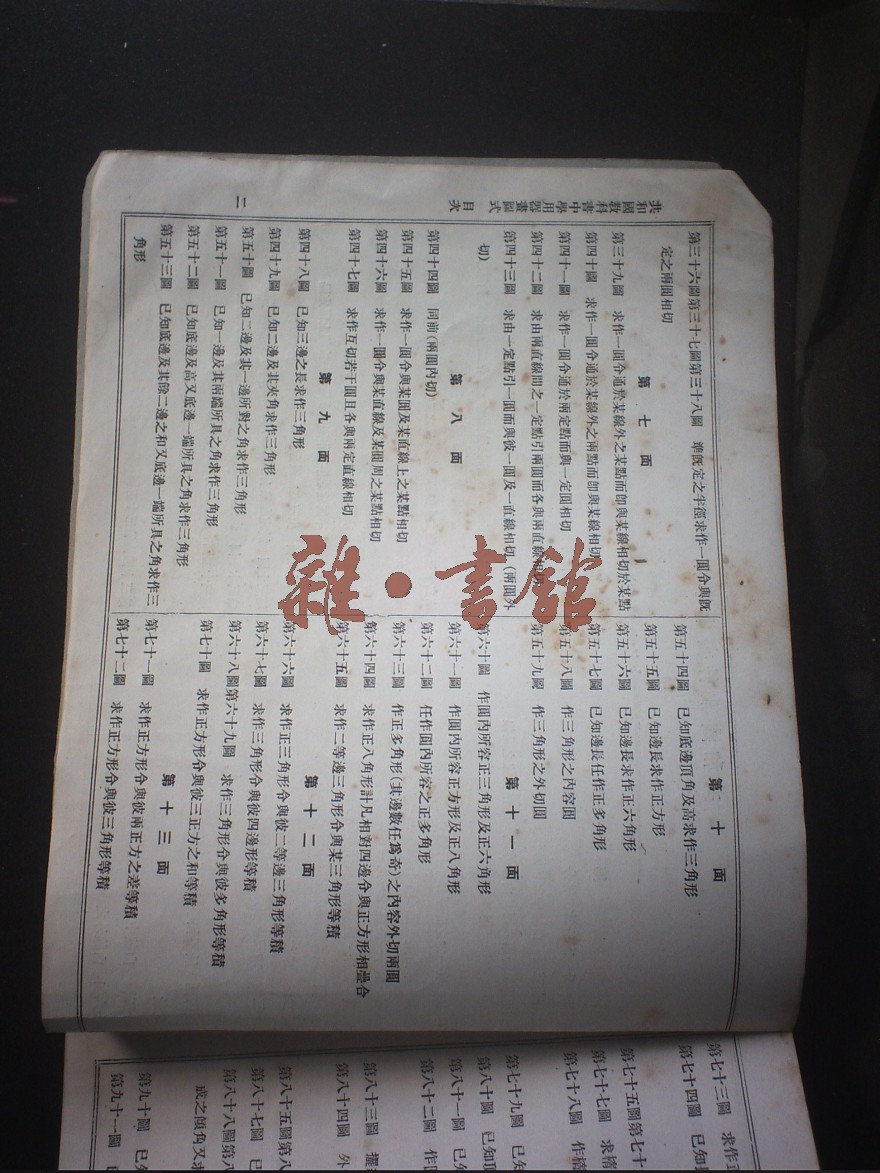 共和國教科書中學用器畫圖式　目次
二
第三十六圖第三十七圖第三十八圖　準旣定之半徑求作一圓令與旣
定之兩圓相切
第七面
第三十九圖　求作一圓令通於某線外之某點而卽與某線相切於某點
第四十圖　求作一圓令通於某線外之兩點而卽與某線相切
第四十一圖　求作一圓令通於兩定點而與一定圓相切
第四十二圖　求由兩直線間之一定點引兩圓而各與兩直線相切
第四十三圖　求由一定點引一圓而與彼一圓及一直線相切（兩圓外
切）
第八面
第四十四圖　同前（兩圓內切）
第四十五圖　求作一圓令與某圓及某直線上之某點相切
第四十六圖　求作一圓令與某直線及某圓周之某點相切
第四十七圖　求作互切若干圓且各與兩定直線相切
第九面
第四十八圖　已知三邊之長求作三角形
第四十九圖　已知二邊及其夾角求作三角形
第五十圖　已知二邊及其一邊所對之角求作三角形
第五十一圖　已知一邊及其兩端所具之角求作三角形
第五十二圖　已知底邊及高又底邊一端所具之角求作三角形
第五十三圖　已知底邊及其餘二邊之和又底邊一端所具之角求作三
角形
第十面
第五十四圖　已知底邊頂角及高求作三角形
第五十五圖　已知邊長求作正方形
第五十六圖　已知邊長求作正六角形
第五十七圖　已知邊長任作正多角形
第五十八圖　作三角形之內容圓
第五十九圖　作三角形之外切圓
第十一面
第六十圖　作圓內所容正三角形及正六角形
第六十一圖　作圓內所容正方形及正八角形
第六十二圖　任作圓內所容之正多角形
第六十三圖　作正多角形（其邊數任爲奇）之內容外切兩圓
第六十四圖　求作正八角形計凡相對四邊令與正方形相疊合
第六十五圖　求作二等邊三角形令與某三角形等積
第十二面
第六十六圖　求作正三角形令與彼二等邊三角形等積
第六十七圖　求作三角形令與彼四邊形等積
第六十八圖第六十九圖　求作三角形令與彼多角形等積
第七十圖　求作正方形令與彼三正方之和等積
第十三面
第七十一圖　求作正方形令與彼兩正方之差等積
第七十二圖　求作正方形令與彼三角形等積
第七十三圖　求作正
第七十四圖　已知
第七十五圖第七十
第七十七圖　求
第七十八圖　作橢
第七十九圖　已知
第八十圖　已知頂
第八十一圖　已知
第八十二圖　作
第八十三圖　擺
第八十四圖　外
第八十五圖第八
第八十七圖　已
第八十八圖第八
成之傾角又求
第九十圖　已知
第九十一圖
雜·書館